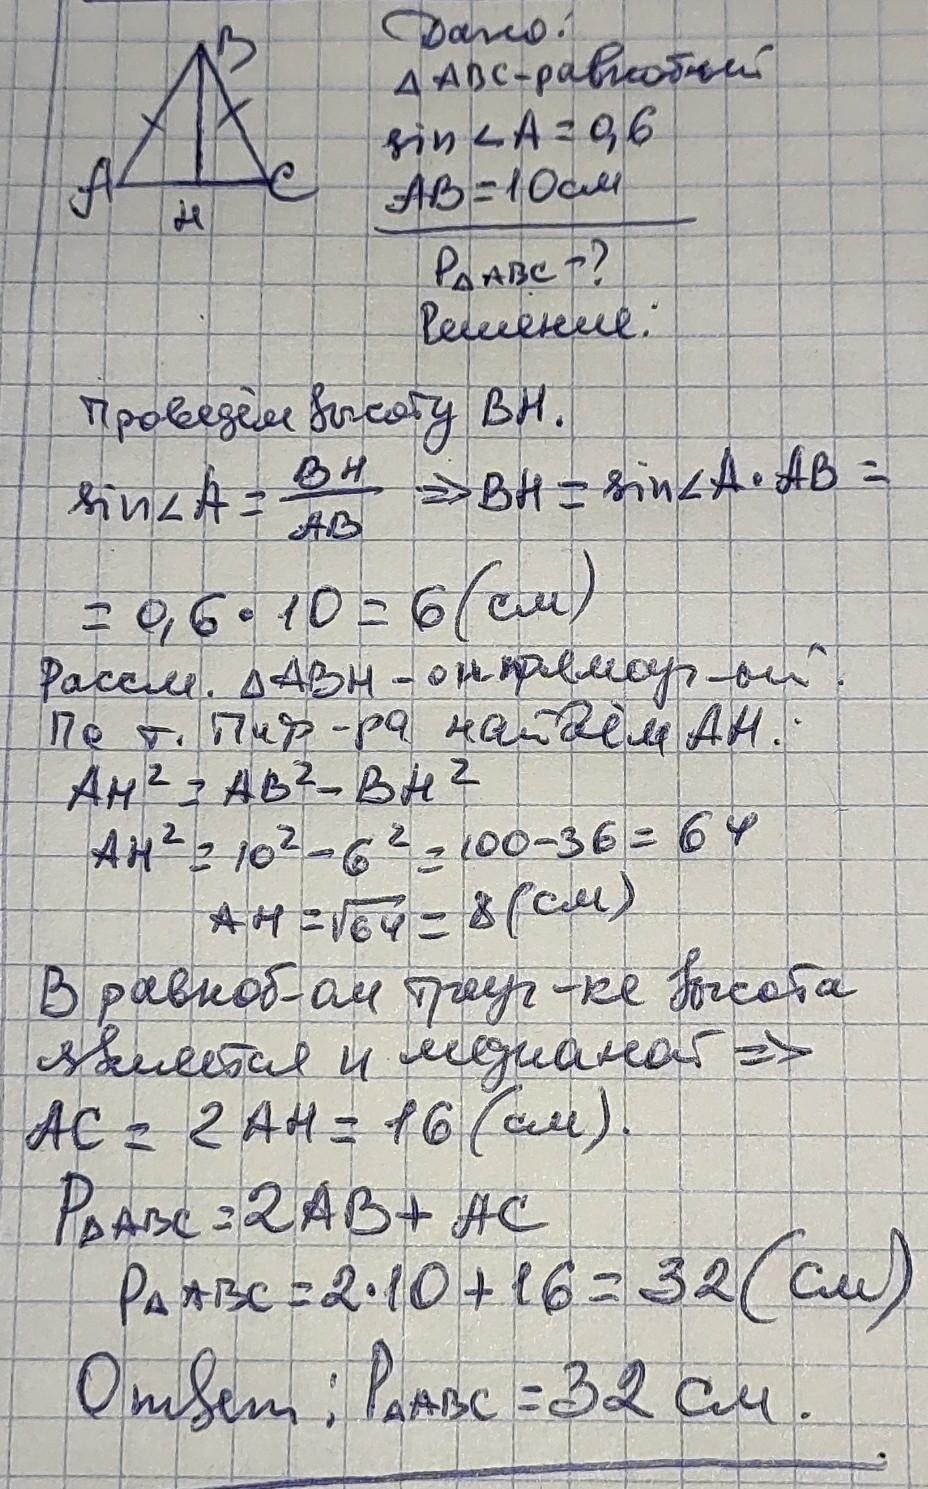 B
A
C
H
Дано:
△ABC-равнобный
sin∠A=0,6
AB=10см
P△ABC-?
Решение:
Проведём высоту BH.
sin∠A = BH/AB ⇒ BH = sin∠A·AB =
= 0,6·10 = 6 (см)
Рассм. △ABH - он прямоуг-ый.
По т. Пиф-ра найдём AH:
AH² = AB² - BH²
AH² = 10² - 6² = 100-36 = 64
AH = √64 = 8 (см)
В равноб-ом треуг-ке высота
является и медианой ⇒
AC = 2AH = 16 (см).
P△ABC = 2AB + AC
P△ABC = 2·10 + 16 = 32 (см)
Ответ: P△ABC = 32 см.